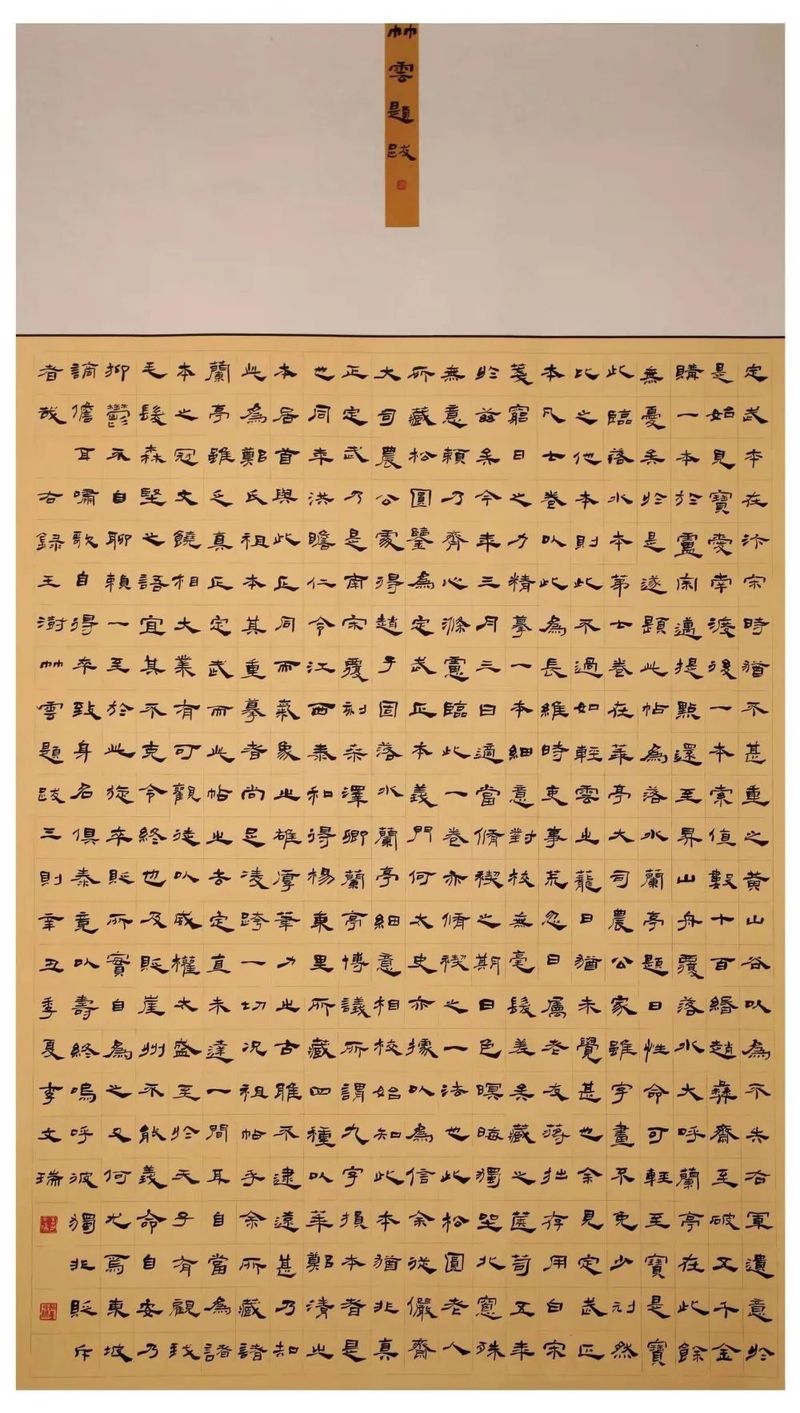 竹雲題跋
定武本在汴宋時猶不甚重之黃山谷以為不失右軍遺意於
是始見寶愛南渡後一本索值數十百緡趙彝齋至破又千金
購一本於盧宗邁提點還至昇山舟覆落水大呼蘭亭在此餘
無憂矣於是遂題此帖為落水蘭亭題曰性命可輕至寶是寶
此臨落水本第士卷在華亭大司農公家雖字畫不免少刓然
比之他本則此不過如輕雲之蘢日猶未覺甚也余見定武正
本凡士卷以此為長維時吏事荒忽日屬老友蔣拙存用白宋
箋窮日之力精摹一本細意對校無毫髮差矣藏之篋笥五年
於茲矣今年三月三日適當脩禊之期日色暝晦獨坐北窗殊
無意賴乃齊心滌慮臨此一卷亦脩禊之一法也此松圓老人
所藏松圓鑒為定武正本義門何太史亦據以為信余從儼齋
大司農公處得趙子固落水蘭亭細意相校始知此本猶非真
正定武乃是南宋覆刻桑澤卿蘭亭博議所謂九字損本者是
也同年洪瞻仁令江西泰和得楊東里所藏四種以華鄭清之
本居首與此正同而氣象之雄厚筆力之古雅不逮遠甚乃知
此為鄭氏祖本其重摹者尚足凌跨一切況祖帖乎余所藏諸
蘭亭雖乏真正定武而此帖之去定直未達一間耳自當為諸
本之冠文饒相大業有可觀徒以威權太盛至於天子有觀我
毛髮森堅之語宜其不克令終也及貶崖州不能義命自安乃
抑鬱不自聊賴一至於此旋卒貶所實自為之又何尤焉東坡
謫儋耳嘯歌自得卒致身名俱泰竟以壽終嗚呼彼獨非貶斥
者哉 右錄王澍竹雲題跋三則辛丑季夏李文瑞